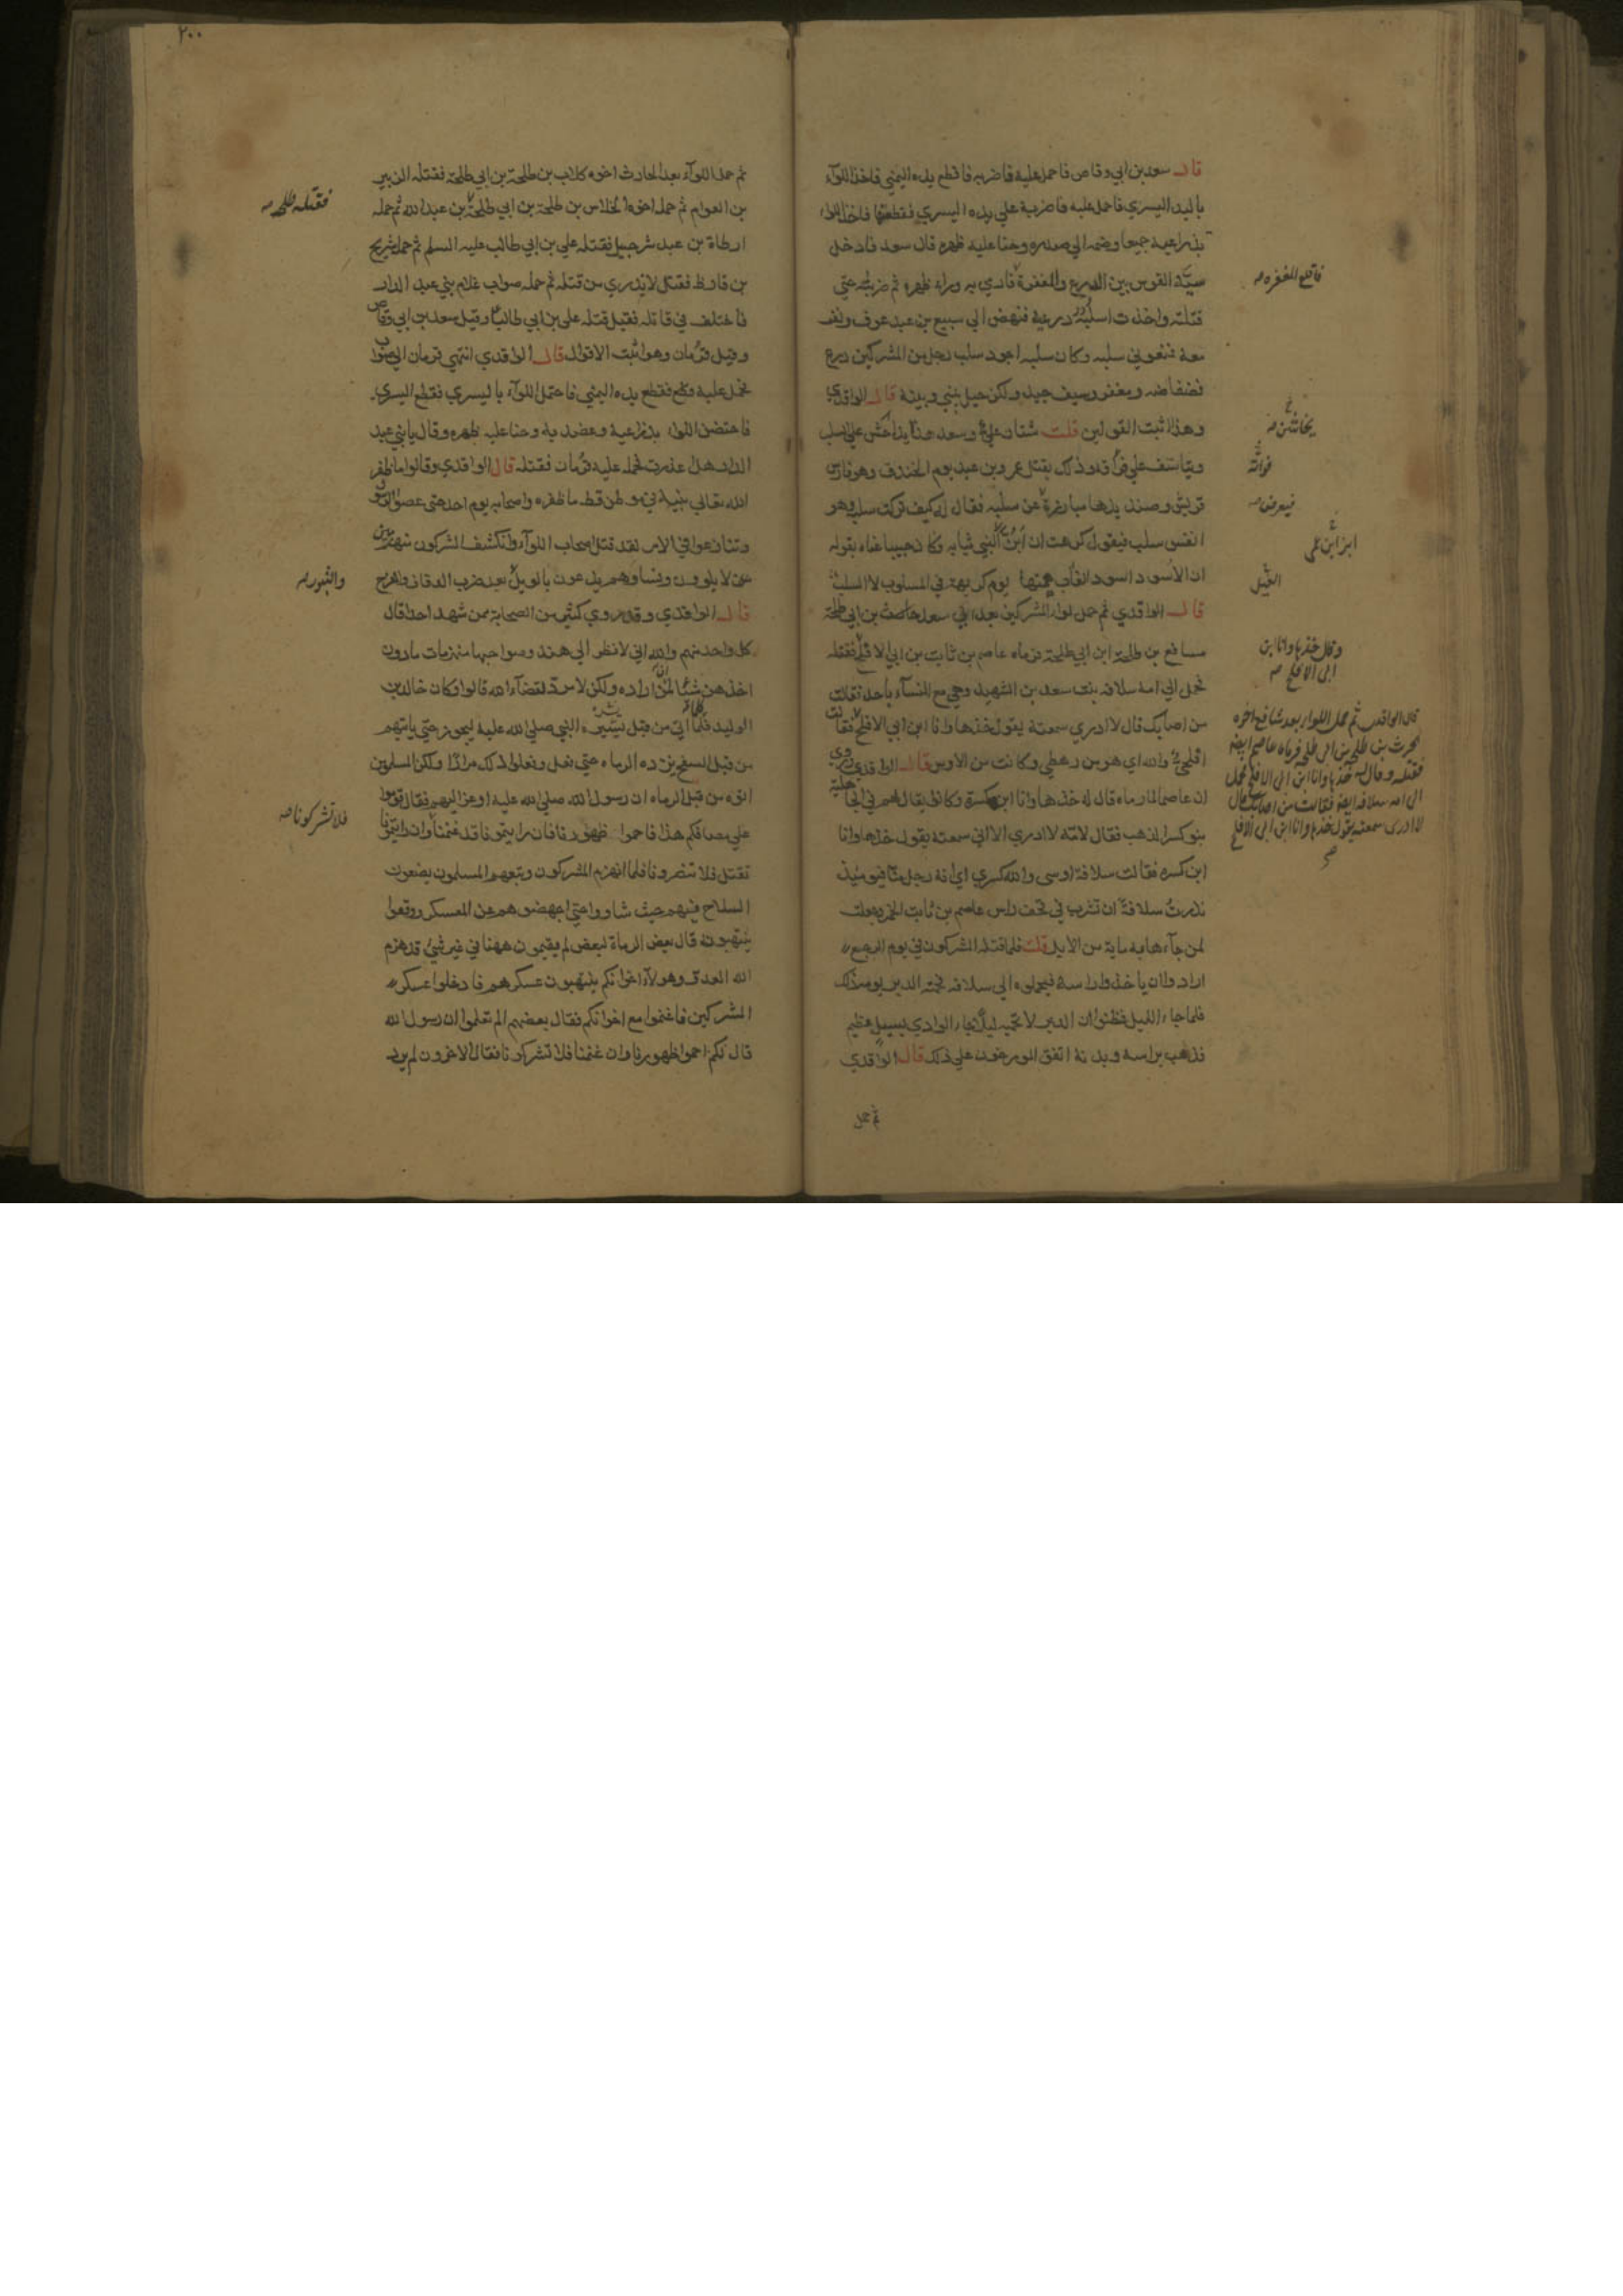 قال سعد بن ابي وقاص فاحمل عليه فاضربه فاقطع يده اليمني فاخذ اللوآء
باليد اليسري فاحمل عليه فاضربه علي يده اليسري فقطعتها فاخذ اللواء
بذراعيه جميعا وضمه الي صدره وحنا عليه ظهره قال سعد فادخل
سية القوس بين الدرع والمغفرة فارمي به وراء ظهره ثم ضربته حتي
قتلته واخذت اسلبه درعه فنهض الي سبيع بن عبد عوف ونفر
معه فمنعوني سلبه وكان سلبه اجود سلب رجل من المشركين درع
فضفاضه ومغفر وسيف جيد ولكن حيل بيني وبينه قال الواقدي
وهذا اثبت القولين قلت شتان علي وسعد هذا يجاحش علي السلب
ويتاسف علي فواته وذلك يقتل عمرو بن عبد يوم الخندق وهو فارس
قريش وصنديدها مبارزة عن سلبه فقال له كيف تركت سلبه وهو
انفس سلب فيقول كرهت ان ابز السبي ثيابه وكان حبيبا عناه بقوله
ان الاسود اسود الغاب همتها يوم الكريهة في المسلوب لا السلب
قال الواقدي ثم حمل لواء المشركين بعد ابي سعد بن ابي طلحة
مسافع بن طلحة ابن ابي طلحة فرماه عاصم بن ثابت بن ابي الاقلح فقتله
فحمل الي امه سلافه بنت سعد بن الشهيد وهي مع النسآء باحد فقالت
من اصابك قال لا ادري سمعته يقول خذها وانا ابن ابي الاقلح فقالت
اقلحي والله اي هو من رهطي وكانت من الاوس قال الواقدي وروي
ان عاصما لما رماه قال له خذها وانا ابن كسرة وكانوا يقال لهم في الجاهلية
بنو كسر الذهب فقال لامه لا ادري الا اني سمعته يقول خذها وانا
ابن كسره فقالت سلافة اوسى والله كسري اي انه رجل منا فيومئذ
نذرت سلافة ان تشرب في قحف راس عاصم بن ثابت الخمر وجعلت
لمن جآءها به ماية من الابل قلت فلما قتله المشركون في يوم الرجيع
ارادوا ان ياخذوا راسه فيحملوه الي سلافه فحمته الدبر يومه ذلك
فلما جاء الليل فظنوا ان الدبر لا تحميه ليلا جاء الوادي بسيل عظيم
فذهب براسه وبدنه اتفق المورخون علي ذلك قال الواقدي
ثم حمل
فاقلع المغفره
فواته
فيعرض
ابن علي
الغيل
وقال خذها وانا ابن
ابي الاقلح
قال الواقدي ثم حمل اللواء بعد مسافع اخوه
الحرث بن طلحه بن ابي طلحه فرماه عاصم ايضا
فقتله وقال خذها وانا ابن ابي الاقلح فحمل
الي امه سلافه ايضا فقالت من اصابك قال
لا ادري سمعته يقول خذها وانا ابن ابي الاقلح
٢٠٠
ثم حمل اللوآء بعد الحارث اخوه كلاب بن طلحة بن ابي طلحة فقتله الزبير
بن العوام ثم حمله اخوه الجلاس بن طلحة بن ابي طلحة بن عبد الله ثم حمله
ارطاة بن عبد شرحبيل فقتله علي بن ابي طالب عليه السلم ثم حمله شريح
بن قارظ فقتل لا يدري من قتله ثم حمله صواب غلام بني عبد الدار
فاختلف في قاتله فقيل قتله علي بن ابي طالب وقيل سعد بن ابي وقاص
وقيل قزمان وهو اثبت الاقوال قال الواقدي انتهي قزمان الي صواب
فحمل عليه فقطع يده اليمني فاحتمل اللوآء باليسري فقطع اليسري
فاحتضن اللواء بذراعيه وعضديه وحنا عليه ظهره وقال يا بني عبد
الدار هل عذرت فحمل عليه قزمان فقتله قال الواقدي وقالوا ما ظفر
الله تعالي نبيه في موطن قط ما ظفره واصحابه يوم احد حتي عصوا الرسول
وتنازعوا في الامر لقد قتل اصحاب اللوآء وانكشف المشركون منهزمين
لا يلوون ونساوهم يدعون بالويل بعد ضرب الدفاف والفرح
قال الواقدي وقد روي كثير من الصحابة ممن شهد احدا قال
كل واحد منهم والله اني لانظر الي هند وصواحبها منهزمات ما دون
اخذهن شئ لمن اراده ولكن لا مرد لقضآء الله قالوا وكان خالد بن
الوليد كلما اتي من قبل ميسرة النبي صلي الله عليه ليجوز حتي ياتيهم
من قبل السفح يرده الرماه حتي فعل وفعلوا ذلك مرارا ولكن المسلمين
اتوه من قبل الرماه ان رسول الله صلي الله عليه اوعز اليهم فقال قوموا
علي مصافكم هذا فاحموا ظهورنا فان رايتمونا قد غنمنا وان رايتمونا
نقتل فلا تنصرونا فلما انهزم المشركون وتبعهم المسلمون يضعون
السلاح فيهم حيث شاوا حتي اجهضوهم عن العسكر ووقعوا
ينتهبونه قال بعض الرماة لبعض لم يقيمون ههنا في غير شئ قد هزم
الله العدو وهولآء اخوانكم ينتهبون عسكرهم فادخلوا عسكر
المشركين فاغنموا مع اخوانكم فقال بعضهم الم تعلموا ان رسول الله
قال لكم احموا ظهورنا وان غنمنا فلا تشركونا فقال الاخرون لم يرد
فقتله طلحه
والثبور
فلا تشركونا